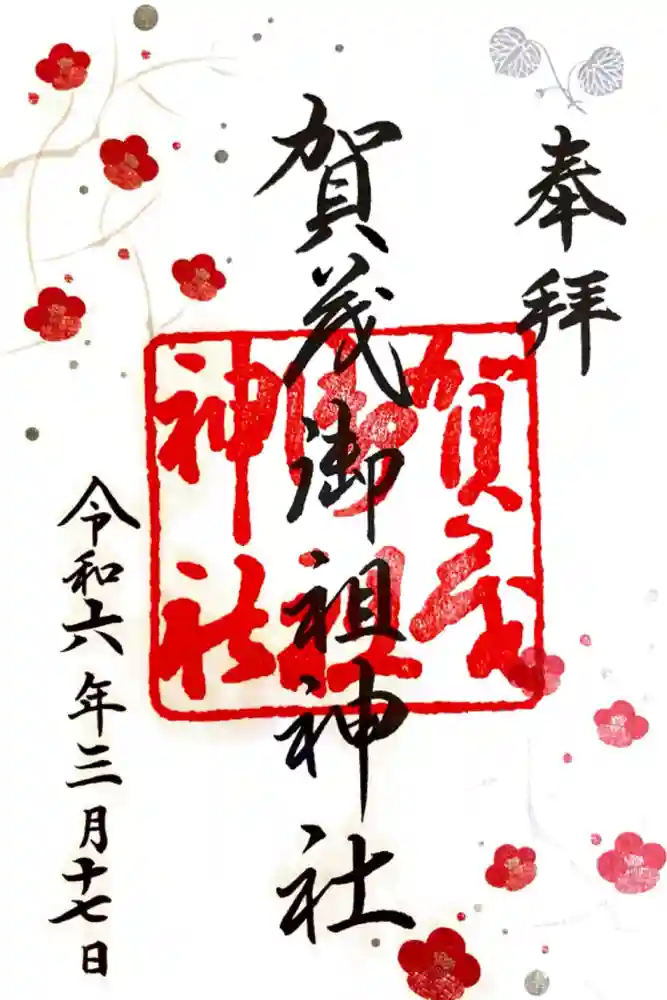 奉拝
賀茂御祖神社
賀茂
御祖
神社
令和六年三月十七日